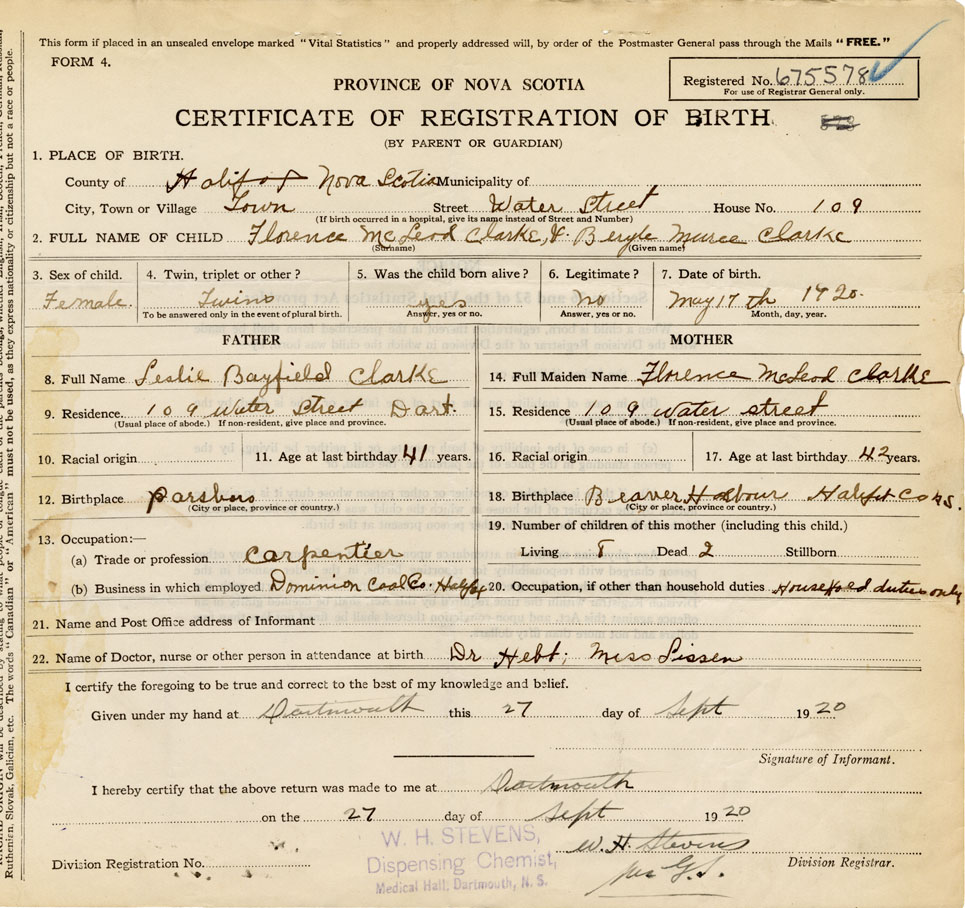 This form if placed in an unsealed envelope marked "Vital Statistics" and properly addressed will, by order of the Postmaster General pass through the Mails "FREE."
FORM 4.
Registered No. 675578
For use of Registrar General only.
PROVINCE OF NOVA SCOTIA
CERTIFICATE OF REGISTRATION OF BIRTH
(BY PARENT OR GUARDIAN)
1. PLACE OF BIRTH.
County of Halifax Nova Scotia Municipality of
City, Town or Village Town Street Water Street House No. 109
(If birth occurred in a hospital, give its name instead of Street and Number)
2. FULL NAME OF CHILD Florence McLeod Clarke, & Beryle Clarke
(Surname) (Given name)
3. Sex of child. 4. Twin, triplet or other? 5. Was the child born alive? 6. Legitimate? 7. Date of birth.
Female. Twins yes no May 17th 1920.
To be answered only in the event of plural birth. Answer, yes or no. Answer, yes or no. Month, day, year.
FATHER
8. Full Name Leslie Bayfield Clarke
9. Residence 109 Water Street Dart.
(Usual place of abode.) If non-resident, give place and province.
10. Racial origin 11. Age at last birthday 41 years.
12. Birthplace Parsboro
(City or place, province or country.)
13. Occupation:—
(a) Trade or profession Carpentier
(b) Business in which employed Dominion Coal Co. Halifax
MOTHER
14. Full Maiden Name Florence McLeod Clarke
15. Residence 109 Water Street
(Usual place of abode.) If non-resident, give place and province.
16. Racial origin 17. Age at last birthday 42 years.
18. Birthplace Beaver Harbour Halifax Co N.S.
(City or place, province or country.)
19. Number of children of this mother (including this child.)
Living Dead 2 Stillborn
20. Occupation, if other than household duties Household duties only
21. Name and Post Office address of Informant
22. Name of Doctor, nurse or other person in attendance at birth Dr Hebt; Miss Sissen
I certify the foregoing to be true and correct to the best of my knowledge and belief.
Given under my hand at Dartmouth this 27 day of Sept 1920
Signature of Informant.
I hereby certify that the above return was made to me at Dartmouth
on the 27 day of Sept 1920
W. H. STEVENS,
Dispensing Chemist,
Medical Hall, Dartmouth, N. S.
W. H. Stevens
Division Registration No. Division Registrar.
Ruthenian, Slovak, Galician, etc. The words "Canadian" or "American" must not be used, as they express nationality or citizenship but not a race or people.